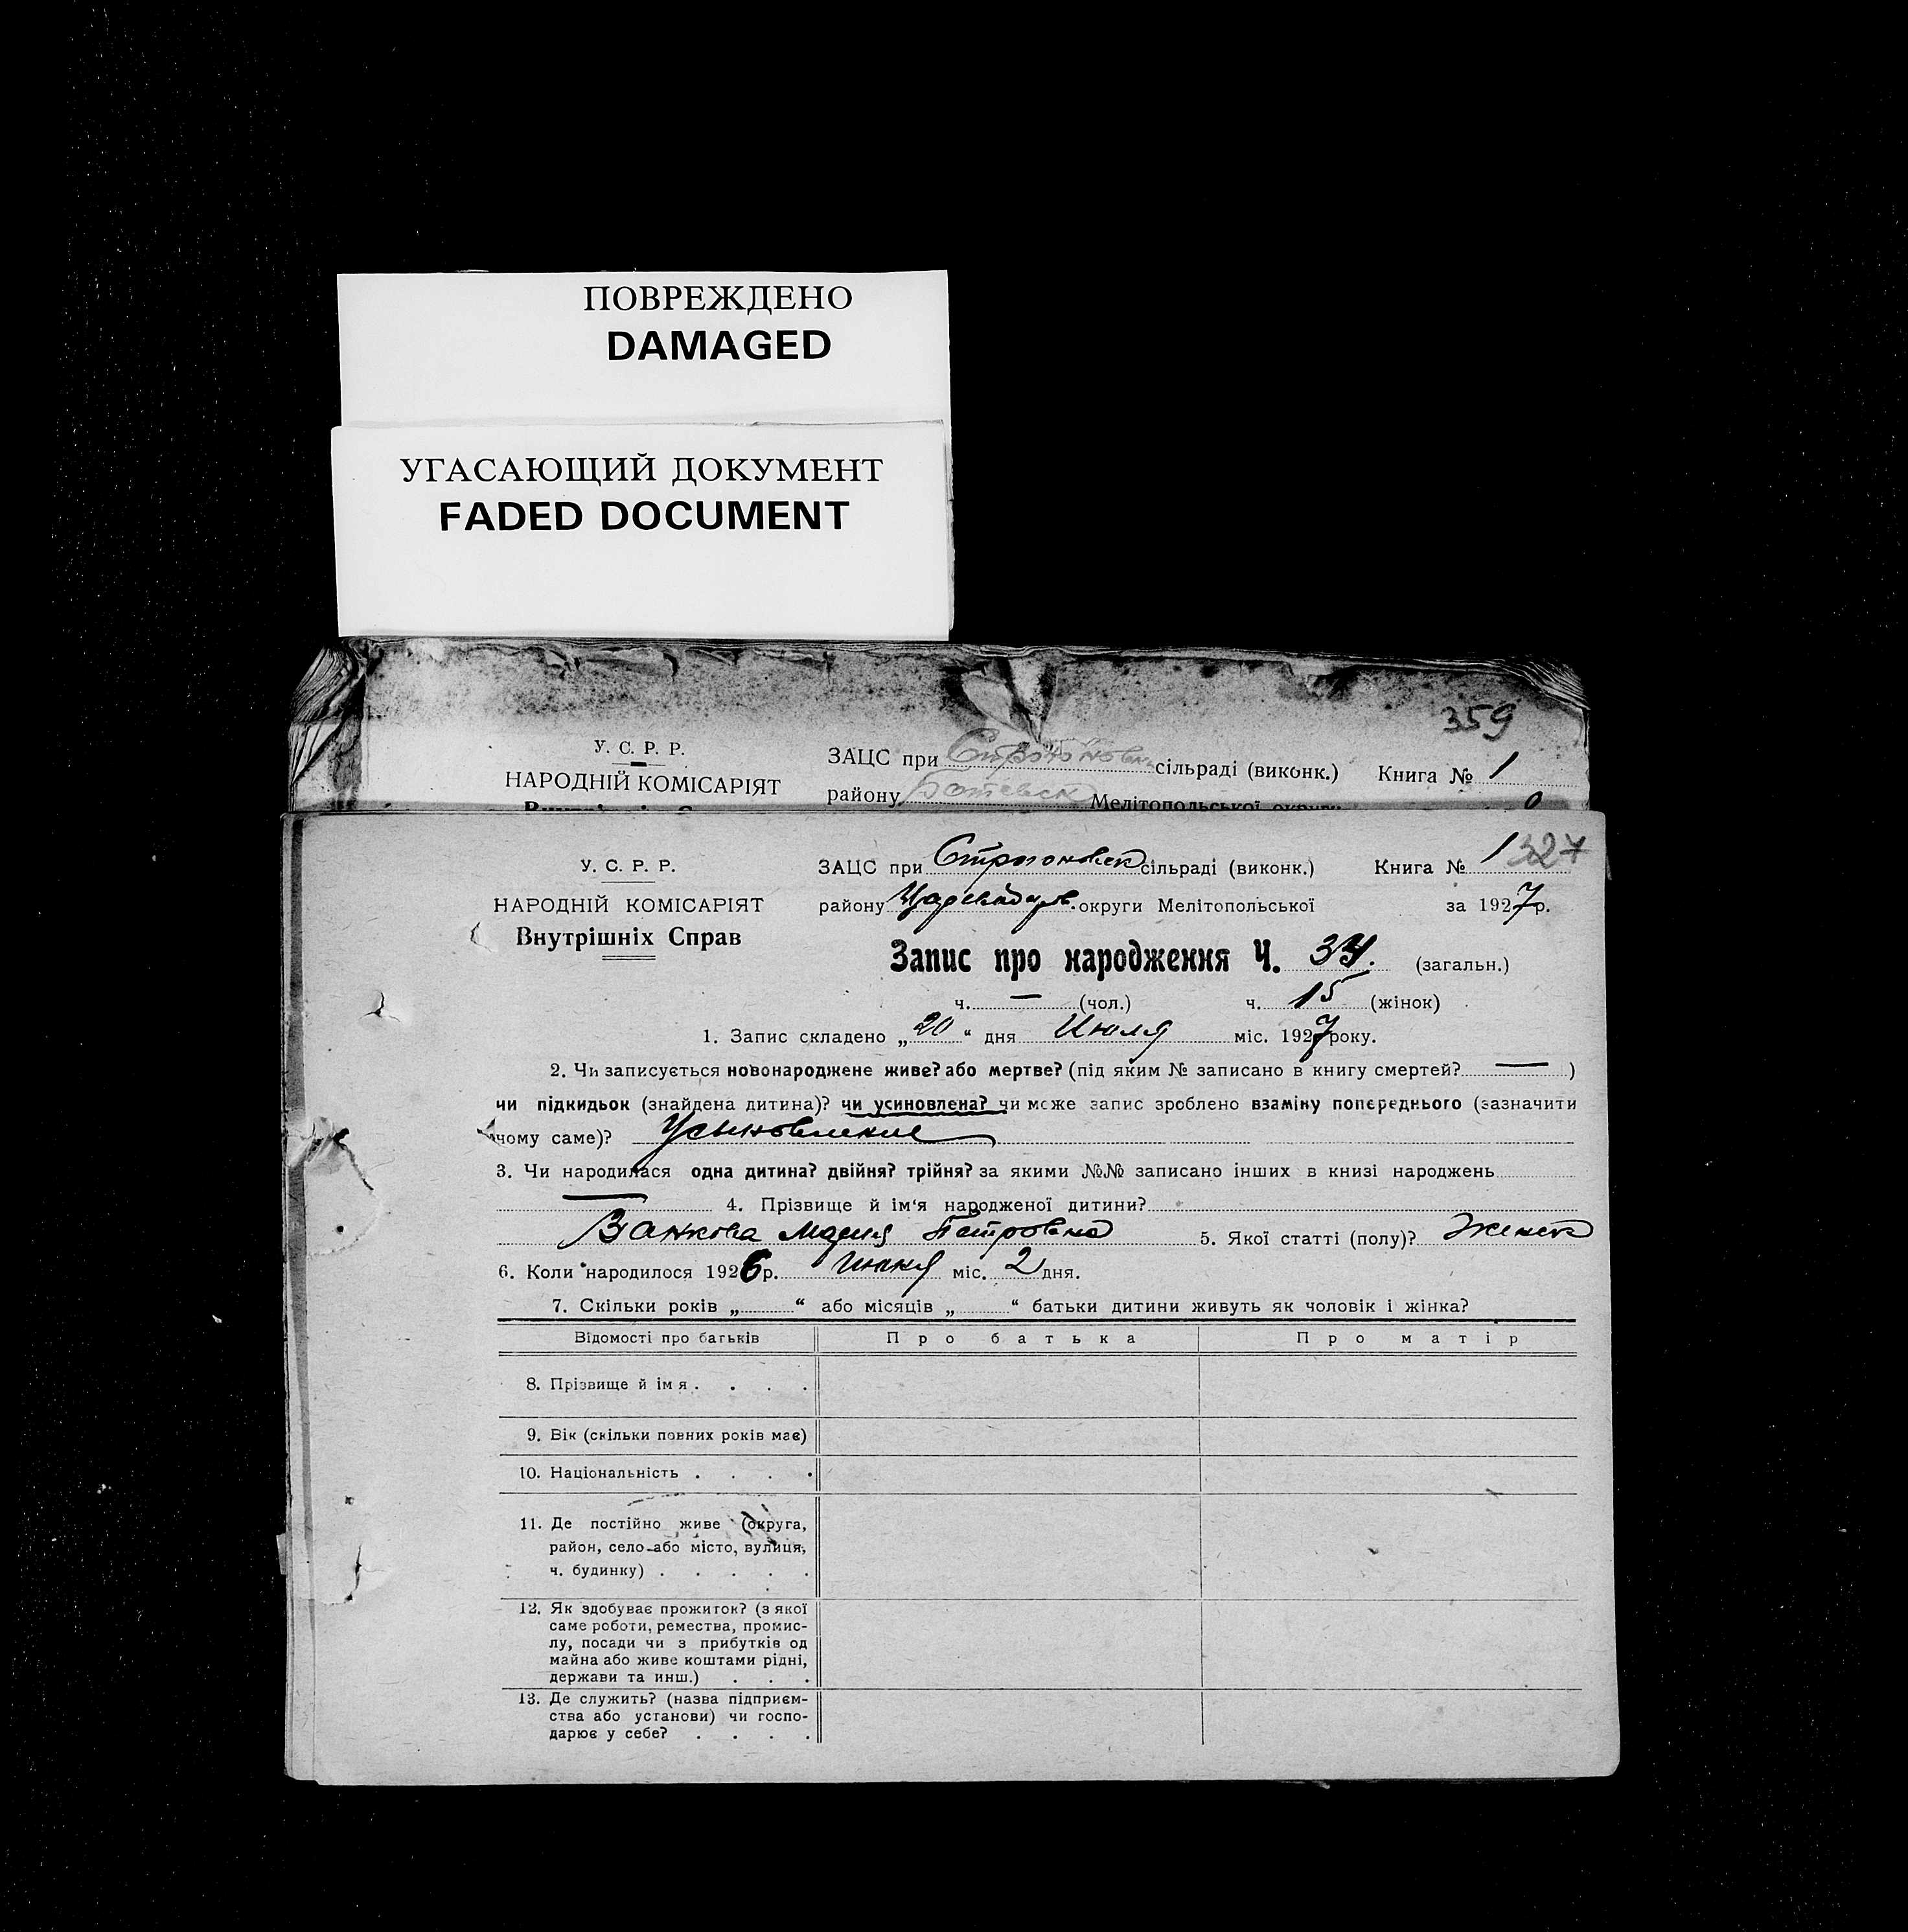 ПОВРЕЖДЕНО
DAMAGED
УГАСАЮЩИЙ ДОКУМЕНТ
FADED DOCUMENT
359
У. С. Р. Р.
НАРОДНІЙ КОМІСАРІЯТ
ЗАЦС при Строгоновск сільраді (виконк.) Книга № 1
району Ботевск Мелітопольської округи
327
У. С. Р. Р.
НАРОДНІЙ КОМІСАРІЯТ
Внутрішніх Справ
ЗАЦС при Строгоновск сільраді (виконк.) Книга № 1
району округи Мелітопольської за 1927 р.
Запис про народження Ч. 34. (загальн.)
ч. — (чол.) ч. 15 (жінок)
1. Запис складено „20“ дня Июля міс. 1927 року.
2. Чи записується новонароджене живе? або мертве? (під яким № записано в книгу смертей? — )
чи підкидьок (знайдена дитина)? чи усиновлена? чи може запис зроблено взаміну попереднього (зазначити
чому саме)? Усыновление
3. Чи народилася одна дитина? двійня? трійня? за якими №№ записано інших в книзі народжень
— 4. Прізвище й ім'я народженої дитини?
Ванкова Мария Петровна 5. Якої статті (полу)? Женск
6. Коли народилося 1926 р. июня міс. 2 дня.
7. Скільки років „ “ або місяців „ “ батьки дитини живуть як чоловік і жінка?
Відомості про батьків Про батька Про матір
8. Прізвище й імя . . . .
9. Вік (скільки повних років має)
10. Національність . . . .
11. Де постійно живе (округа,
район, село або місто, вулиця,
ч. будинку) . . . . .
12. Як здобуває прожиток? (з якої
саме роботи, ремества, промис-
лу, посади чи з прибутків од
майна або живе коштами рідні,
держави та инш.) . . .
13. Де служить? (назва підприєм-
ства або установи) чи госпо-
дарює у себе? . . . .